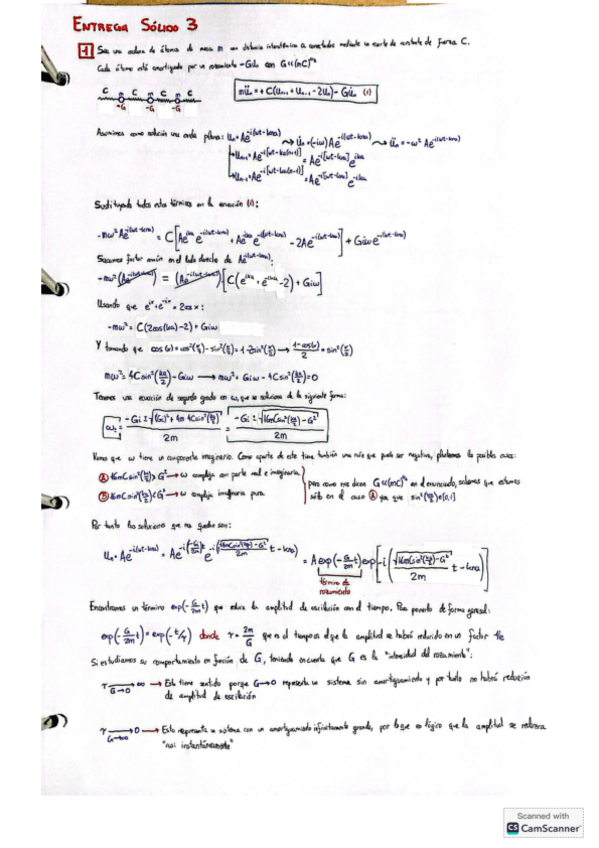 ENTREGA SÓLIDO 3
1 Sea una cadena de átomos de masa m con distancia interatómica a conectados mediante un muelle de constante de fuerza C.
Cada átomo está amortiguado por un rozamiento -Gu̇ₙ con G≪(mC)^{1/2}
C m C m C
-G -G -G
müₙ = +C(uₙ₊₁ + uₙ₋₁ - 2uₙ) - Gu̇ₙ (1)
Asumimos como solución una onda plana: uₙ = Ae^{-i(ωt-kna)} ⇝ u̇ₙ = (-iω)Ae^{-i(ωt-kna)} ⇝ üₙ = -ω² Ae^{-i(ωt-kna)}
uₙ₊₁ = Ae^{-i[ωt-ka(n+1)]} = Ae^{-i[ωt-kna]} e^{ika}
uₙ₋₁ = Ae^{-i[ωt-ka(n-1)]} = Ae^{-i[ωt-kna]} e^{-ika}
Sustituyendo todos estos términos en la ecuación (1):
-mω²Ae^{-i(ωt-kna)} = C[Ae^{ika} e^{-i(ωt-kna)} + Ae^{-ika} e^{-i(ωt-kna)} - 2Ae^{-i(ωt-kna)}] + Giωe^{-i(ωt-kna)}
Sacamos factor común en el lado derecho de Ae^{-i(ωt-kna)}:
-mω²(Ae^{-i(ωt-kna)}) = (Ae^{-i(ωt-kna)})[C(e^{ika} + e^{-ika} - 2) + Giω]
Usando que e^{ix} + e^{-ix} = 2cos x:
-mω² = C(2cos(ka) - 2) + Giω
Y tomando que cos(x) = cos²(x/2) - sin²(x/2) = 1 - 2sin²(x/2) → (1-cos(x))/2 = sin²(x/2)
mω² = 4C sin²(ka/2) - Giω → mω² + Giω - 4C sin²(ka/2) = 0
Tenemos una ecuación de segundo grado en ω, que se soluciona de la siguiente forma:
ω± = (-Gi ± √((Gi)² + 4m 4C sin²(ka/2)))/2m = (-Gi ± √(16mC sin²(ka/2) - G²))/2m
Vemos que ω tiene un componente imaginario. Como aparte de este tiene también una raíz que puede ser negativa, planteamos los posibles casos:
A 16mC sin²(ka/2) > G² → ω compleja con parte real e imaginaria.
B 16mC sin²(ka/2) < G² → ω compleja imaginaria pura.
pero como nos dicen G≪(mC)^{1/2} en el enunciado, sabemos que estamos sólo en el caso A ya que sin²(ka/2) ∈ [0,1]
Por tanto las soluciones que nos quedan son:
uₙ = Ae^{-i(ωt-kna)} = Ae^{-i(-Gi/2m)t} e^{-i(√(16mC sin²(ka/2) - G²)/2m t - kna)} = A exp(-G/2m t) exp[-i(√(16mC sin²(ka/2) - G²)/2m t - kna)]
término de rozamiento
Encontramos un término exp(-G/2m t) que reduce la amplitud de oscilación con el tiempo. Para ponerlo de forma general:
exp(-G/2m t) = exp(-t/τ) donde τ = 2m/G que es el tiempo en el que la amplitud se habrá reducido en un factor 1/e
Si estudiamos su comportamiento en función de G, teniendo en cuenta que G es la "intensidad del rozamiento":
τ → ∞ G→0 → Esto tiene sentido porque G→0 representa un sistema sin amortiguamiento y por tanto no habrá reducción de amplitud de oscilación
τ → 0 G→∞ → Esto representa un sistema con un amortiguamiento infinitamente grande, por lo que es lógico que la amplitud se reduzca "casi instantáneamente"
Scanned with
CS CamScanner